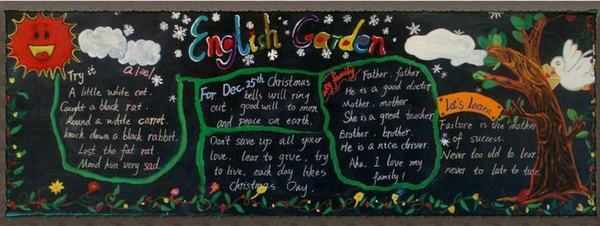 English Garden
Try it a/æ/
A little white cat.
Caught a black rat.
Round a white carrot.
knock down a black rabbit.
Lost the fat rat
Mind him very sad.
For Dec. 25th Christmas
bells will ring
out good will to men
and peace on earth.
Don't save up all your
love, lear to give, try
to live, each day likes
Christmas Day.
my family
Father, father
He is a good doctor
Mother, mother.
She is a great teacher
Brother, brother.
He is a nice driver.
Aha. I love my
family!
let's learn
Failure is the mother
of success.
Never too old to lear
never to late to turn.